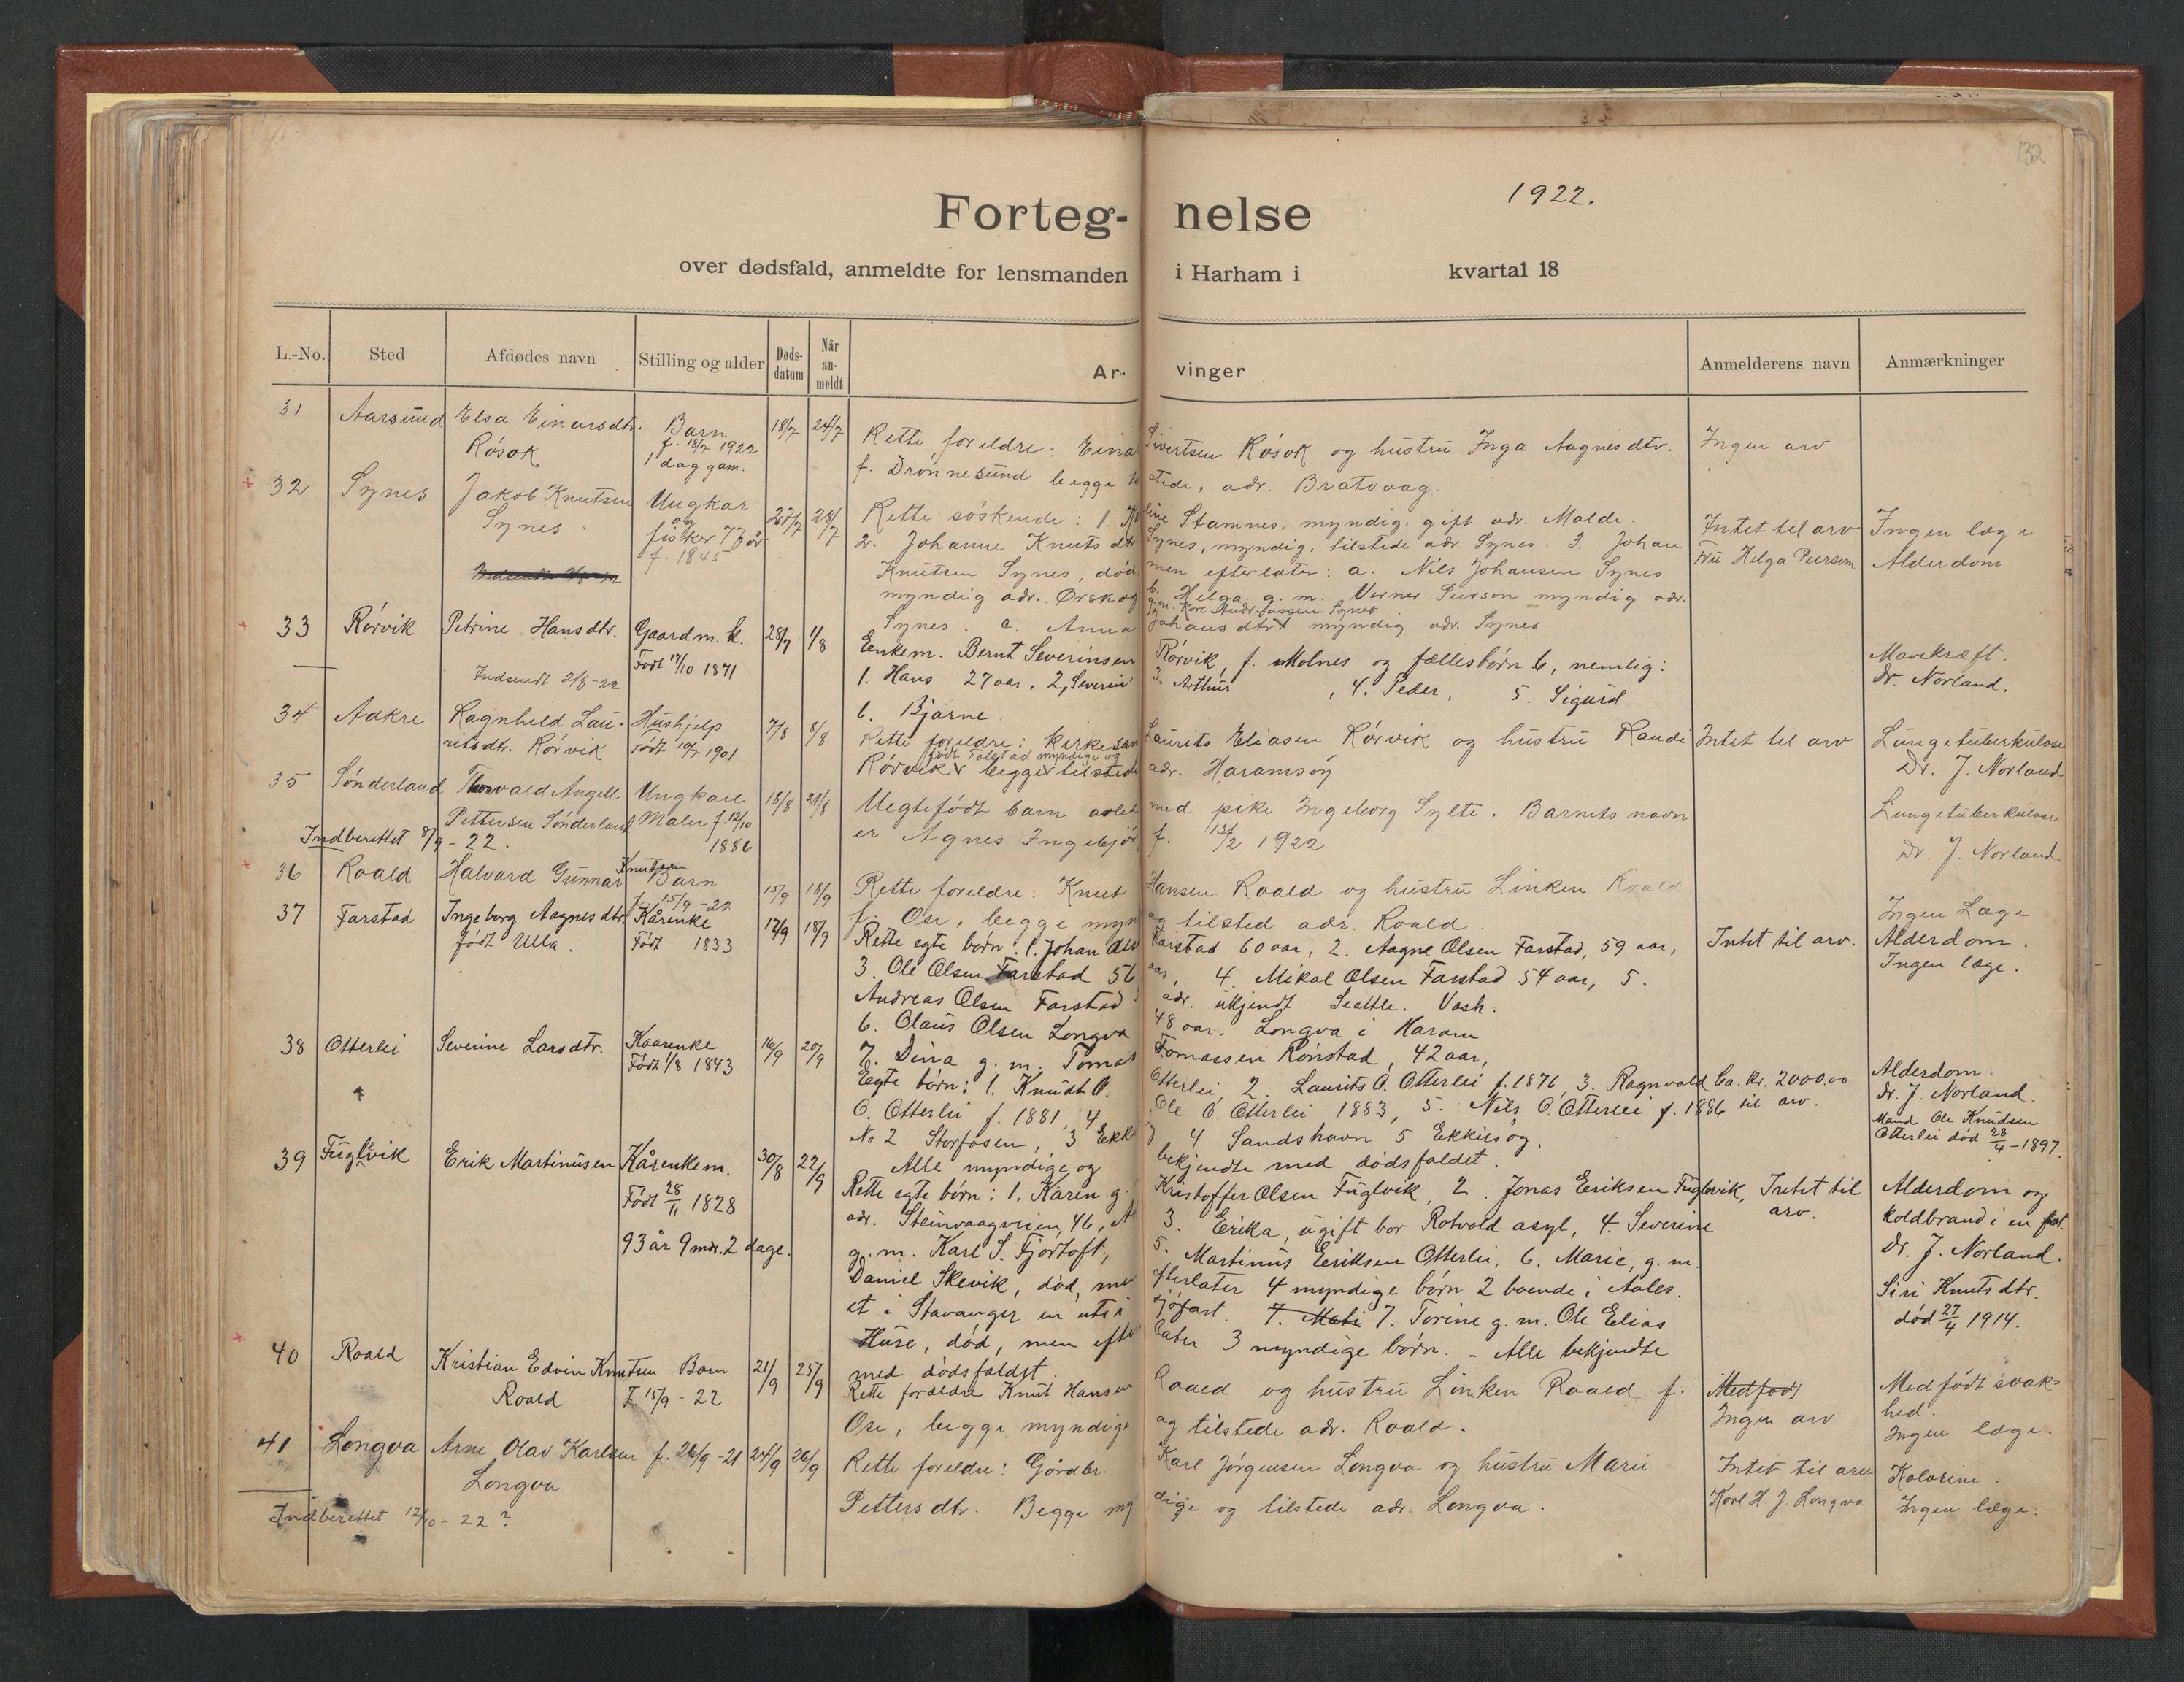 132
1922.
Forteg- nelse
over dødsfald, anmeldte for lensmanden i Harham i kvartal 18
L.-No. Sted Afdødes navn Stilling og alder Døds-datum Når an-meldt Ar- vinger Anmelderens navn Anmærkninger
31 Aarsund Elsa Einarsdtr. Barn 18/7 24/7 Rette foreldre: Eina Sivertsen Røsok og hustru Inga Aagnesdtr. Ingen arv
Røsok f. 18/7 1922 f. Drønnesund begge tilstede, adr. Bratvaag.
1 dag gam.
32 Synes Jakob Knutsen Ungkar 27/7 28/7 Rette søskende: 1. Stamnes, myndig, gift adr. Molde. Intet til arv Ingen læge
Synes og fisker 77 år 2. Johanne Knutsdtr Synes, myndig, tilstede adr. Synes. 3. Johan Fru Helga Peerson Alderdom
f. 1845 Knutsen Synes, død, men efterlater: a. Nils Johansen Synes
myndig adr. Ørskog b. Helga g. m. Verner Peerson myndig adr.
Synes. c. Anna Johansdtr myndig adr. Synes
33 Rørvik Petrine Hansdtr. Gaardm. k. 28/7 1/8 Enkem. Bernt Severinsen Rørvik, f. Molnes og fællesbørn 6, nemlig: Mavekræft.
Født 17/10 1871 1. Hans 27 aar, 2, Severin 3. Arthur, 4. Peder, 5. Sigurd Dr. Norland.
Indsendt 2/8-22 6. Bjarne
34 Aakre Ragnhild Lau- Hushjelp 7/8 8/8 Rette foreldre: kirkesan Laurits Eliasen Rørvik og hustru Randi Intet til arv Lungetuberkulose
ritsdtr. Rørvik Født 10/7 1901 født Falstad myndige og
Rørvik begge tilstede adr. Haramsøy Dr. J. Norland
35 Sønderland Thorvald Angell Ungkar 18/8 21/8 Uegtefødt barn avlet med pike Ingeborg Sylte. Barnets navn Lungetuberkulose
Pettersen Sønderland Maler f. 12/10 1886 er Agnes Ingebjør f. 13/2 1922 Dr. J. Norland
Indberettet 8/9-22.
36 Roald Halvard Gunnar Knutsen Barn 15/9 18/9 Rette foreldre: Knut Hansen Roald og hustru Linken Roald
f. 15/9-22 f. Ose, begge myn og tilsted adr. Roald. Ingen Læge
37 Farstad Ingeborg Aagnesdtr. Kårenke 17/9 18/9 Rette egte børn: 1. Johan Farstad 60 aar, 2. Aagne Olsen Farstad, 59 aar, Intet til arv. Alderdom.
født Ulla. Født 1833 3. Ole Olsen Farstad 56 aar, 4. Mikal Olsen Farstad 54 aar, 5. Ingen læge.
Andreas Olsen Farstad adr. ukjendt Seattle. Vash.
6. Olaus Olsen Longva 48 aar. Longva i Haram
7. Dina g. m. Tomas Tomassen Rønstad, 42 aar,
38 Otterlei Severine Larsdtr. Kaarenke 16/9 20/9 Egte børn: 1. Knudt O. Otterlei, 2. Laurits O. Otterlei f. 1876, 3. Ragnvald Ca. kr. 2000,00 til arv. Alderdom.
Født 1/8 1843 O. Otterlei f. 1881, 4 Ole O. Otterlei 1883, 5. Nils O. Otterlei f. 1886 Dr. J. Norland.
No 2 Storfosen, 3 4 Sandshavn 5 Ekkilsøy. Mand Ole Knudsen
Alle myndige og bekjendte med dødsfaldet. Otterlei død 28/4-1897.
39 Fuglevik Erik Martinusen Kårenkem. 30/8 22/9 Rette egte børn: 1, Karen g. Kristoffer Olsen Fuglvik, 2. Jonas Eriksen Fuglevik, Intet til arv. Alderdom og
Født 28/11 1828 adr. Steinvaagveien 46, 3. Erika, ugift bor Rotvold asyl, 4 Severine koldbrand i en fot.
93 år 9 mdr. 2 dage. g. m. Karl S. Fjørtoft, 5. Martinus Eriksen Otterlei, 6. Marie, g. m. Dr. J. Norland.
Daniel Skevik, død, men efterlater 4 myndige børn 2 boende i Aales. Siri Knutsdtr.
et i Stavanger en ute i sjøfart. 7. Mati 7. Torine g. m. Ole Elias død 27/4 1914.
Huse, død, men efterlater 3 myndige børn. - Alle bekjendte
med dødsfaldet.
40 Roald Kristian Edvin Knutsen Barn 21/9 25/9 Rette forældre Knut Hansen Roald og hustru Linken Roald f. Medfødt Medfødt svak-
Roald F. 15/9-22 Ose, begge myndige og tilstede adr. Roald. Ingen arv hed.
Ingen læge.
41 Longva Arne Olav Karlsen f. 26/9-21 24/9 26/9 Rette foreldre: Gårdbr. Karl Jørgensen Longva og hustru Marie Intet til arv Kolerine.
Longva Pettersdtr. Begge myndige og tilstede adr. Longva. Karl H. J. Longva Ingen læge.
Indberettet 12/10-22?